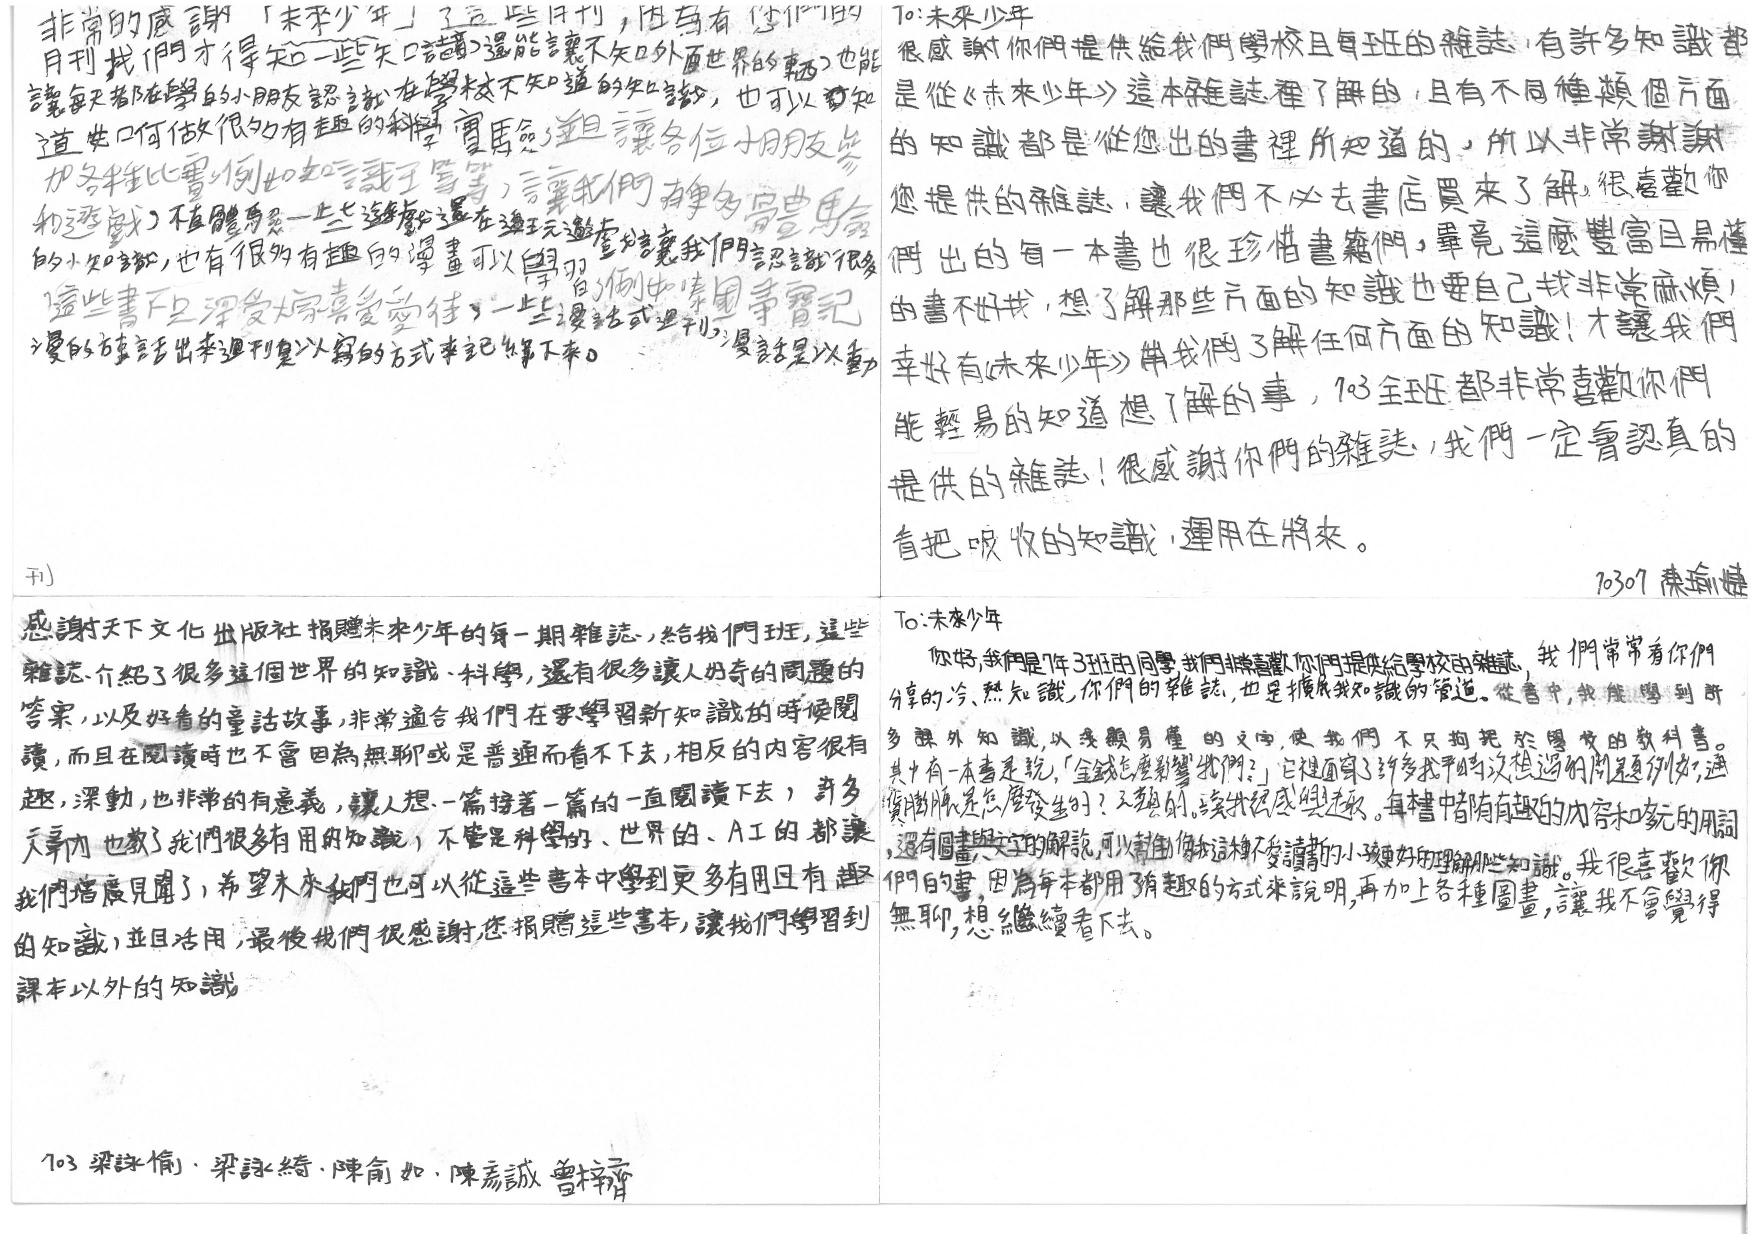 非常的感謝「未來少年」了這些月刊,因為有你們的
月刊我們才得知一些知識,還能讓不知外面世界的東西,也能
讓每天都在學的小朋友認識在學校不知道的知識,也可以知
道如何做很多有趣的科學實驗,並且讓各位小朋友參
加各種比賽,例如知識王等等,讓我們有更多體驗
和遊戲,不但體驗一些遊戲還在遊玩遊戲讓我們認識很多
的小知識,也有很多有趣的漫畫可以學習
這些書不只深受大家喜愛愛待,一些漫話或週刊,漫話是以動
漫的方話出來週刊是以寫的方式來記錄下來。
刊)
To:未來少年
很感謝你們提供給我們學校且每班的雜誌,有許多知識都
是從《未來少年》這本雜誌裡了解的,且有不同種類個方面
的知識都是從您出的書裡所知道的,所以非常謝謝
您提供的雜誌,讓我們不必去書店買來了解,很喜歡你
們出的每一本書也很珍惜書籍們,畢竟這麼豐富且易懂
的書不好找,想了解那些方面的知識也要自己找非常麻煩,
幸好有《未來少年》帶我們了解任何方面的知識!才讓我們
能輕易的知道想了解的事,703全班都非常喜歡你們
提供的雜誌!很感謝你們的雜誌,我們一定會認真的
看把吸收的知識,運用在將來。
70307 陳瑜婕
感謝天下文化出版社捐贈未來少年的每一期雜誌,給我們班,這些
雜誌介紹了很多這個世界的知識、科學,還有很多讓人好奇的問題的
答案,以及好看的童話故事,非常適合我們在要學習新知識的時候閱
讀,而且在閱讀時也不會因為無聊或是普通而看不下去,相反的內容很有
趣,深動,也非常的有意義,讓人想一篇接著一篇的一直閱讀下去,許多
文章內也教了我們很多有用的知識,不管是科學的、世界的、AI的都讓
我們增廣見聞了,希望未來我們也可以從這些書本中學到更多有用且有趣
的知識,並且活用,最後我們很感謝您捐贈這些書本,讓我們學習到
課本以外的知識。
703 梁詠愉.梁詠綺.陳俞如.陳彥誠 曾梓齊
To:未來少年
你好,我們是7年3班的同學我們非常喜歡你們提供給學校的雜誌,我們常常看你們
分享的冷、熱知識,你們的雜誌,也是擴展我知識的管道。從書中,我能學到許
多課外知識,以淺顯易懂的文字,使我們不只拘泥於學校的教科書。
其中有一本書是說,「金錢怎麼影響我們?」它裡面寫了許多我平時沒想過的問題例如,通
貨膨脹是怎麼發生的?之類的。讓我很感興趣。每本書中都有有趣的內容和多元的用詞
,還有圖畫與文字的解說,可以幫助你我這種不愛讀書的小孩更好的理解那些知識。我很喜歡你
們的書,因為每本都用了有趣的方式來說明,再加上各種圖畫,讓我不會覺得
無聊,想繼續看下去。